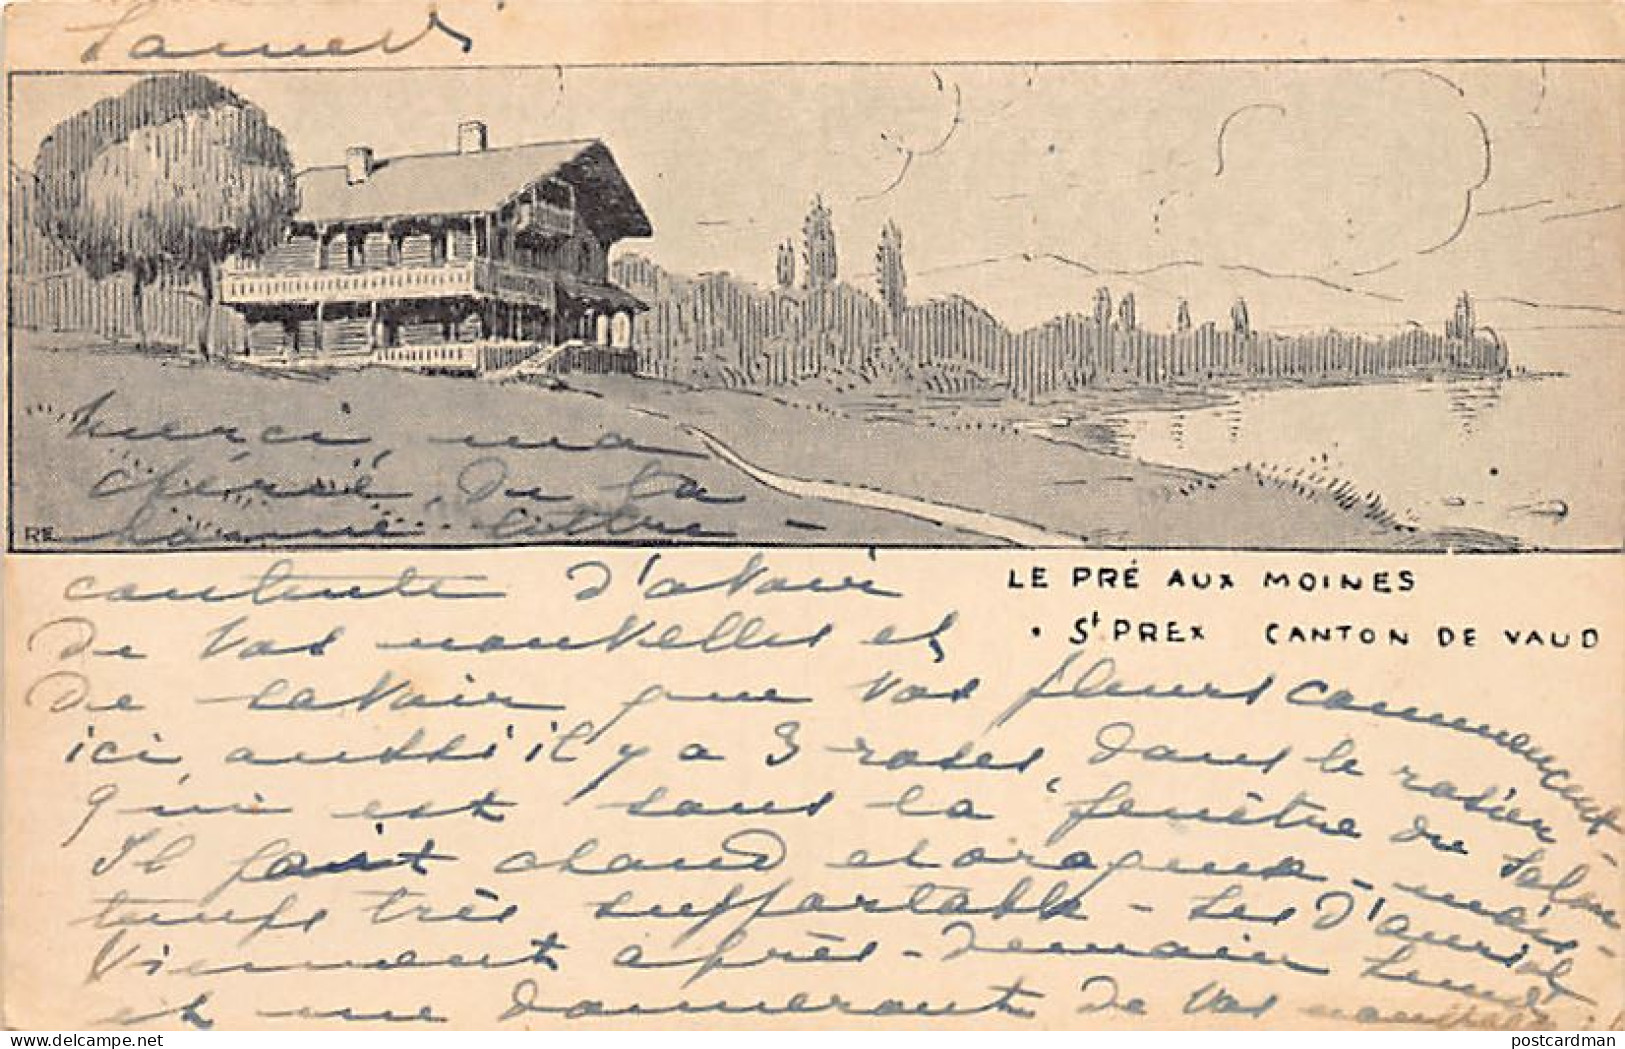 Samedi
Merci, ma
chérie, de ta
bonne lettre -
RE
contente d'avoir
LE PRÉ AUX MOINES
St PREX CANTON DE VAUD
de vos nouvelles et
de savoir que vos fleurs commencent
ici aussi il y a 3 roses, dans le rosier
qui est sous la fenêtre du salon
Il fait chaud et orageux - mais
temps très supportable - Les d'Auriol
viennent après-demain lundi
et me donneront de vos nouvelles
postcardman